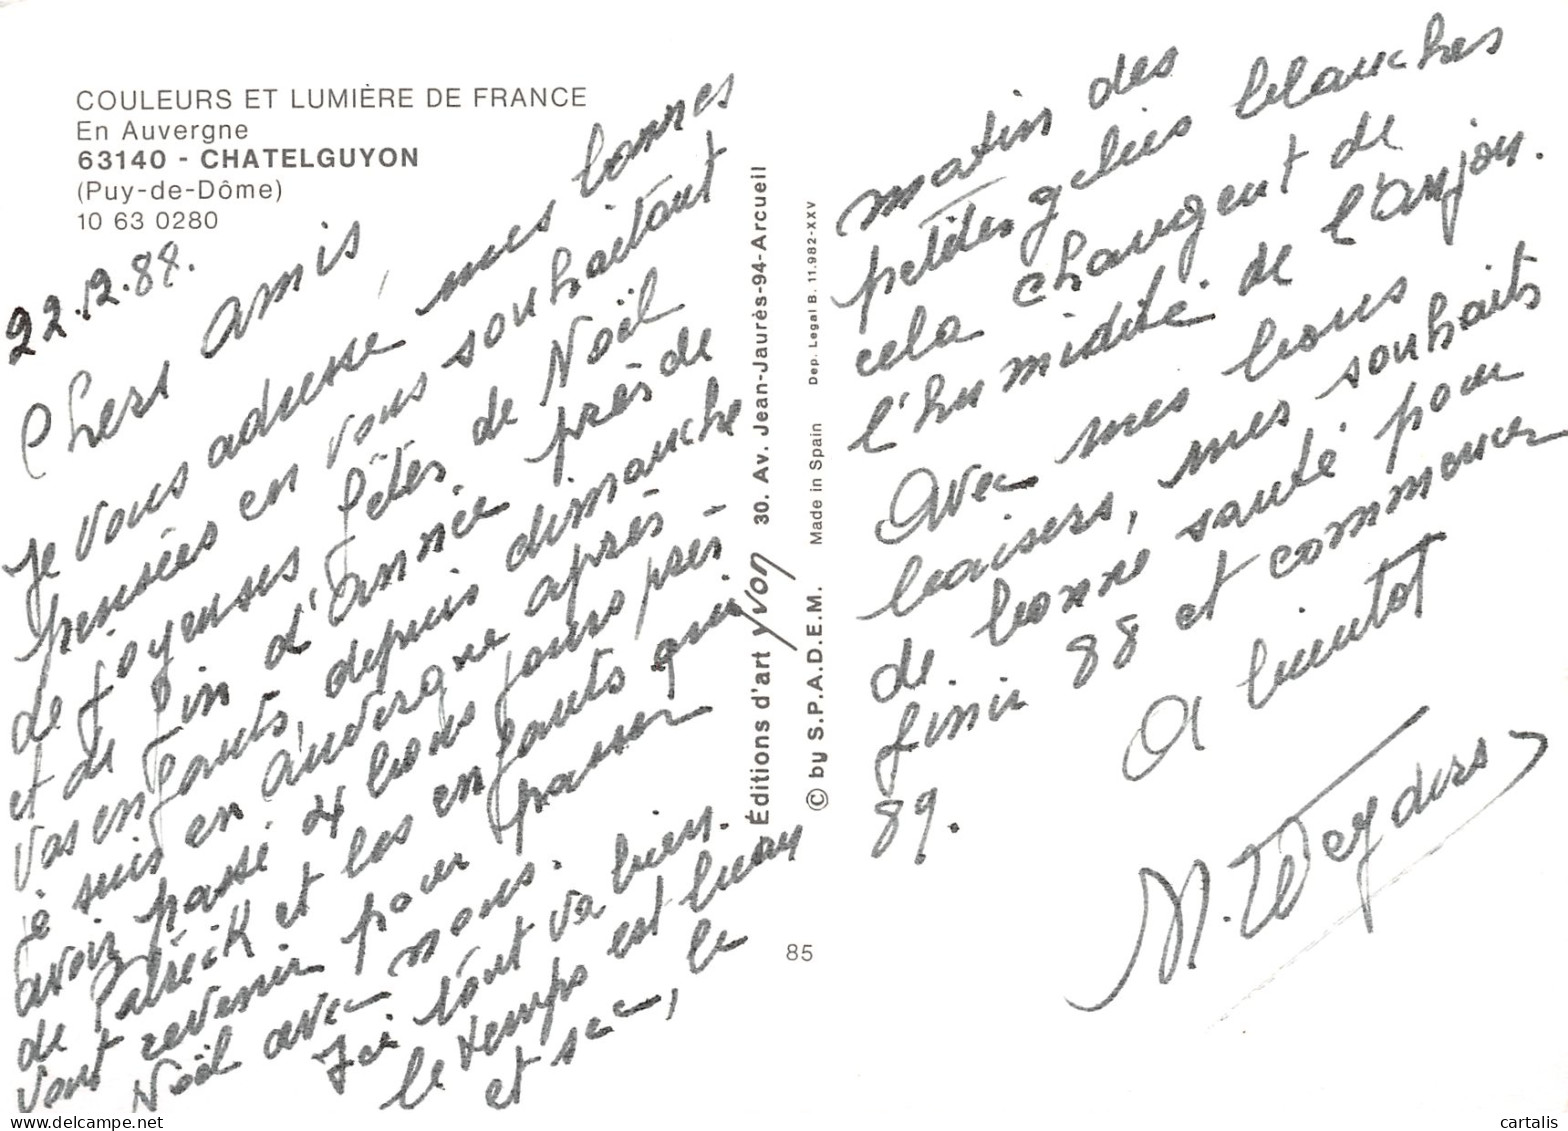 COULEURS ET LUMIÈRE DE FRANCE
En Auvergne
63140 - CHATELGUYON
(Puy-de-Dôme)
10 63 0280
22.12.88.
Chers amis
Je vous adresse mes bonnes
pensées en vous souhaitant
de joyeuses fêtes de Noël
et de fin d'année près de
vos enfants, depuis dimanche
je suis en auvergne après
avoir passé 4 bons jours près
de Patrick et les enfants qui
vont revenir pour passer
Noël avec nous.
Ici tout va bien.
le temps est beau
et sec, le
Éditions d'art yvon 30. Av. Jean-Jaurès-94-Arcueil
© by S.P.A.D.E.M. Made in Spain Dep. Legal B. 11.982-XXV
85
matin des
petites gelées blanches
cela changent de
l'humidité de l'anjou.
Avec mes bons
baisers, mes souhaits
de bonne santé pour
finir 88 et commencer
89.
A bientot
cartalis
delcampe.net